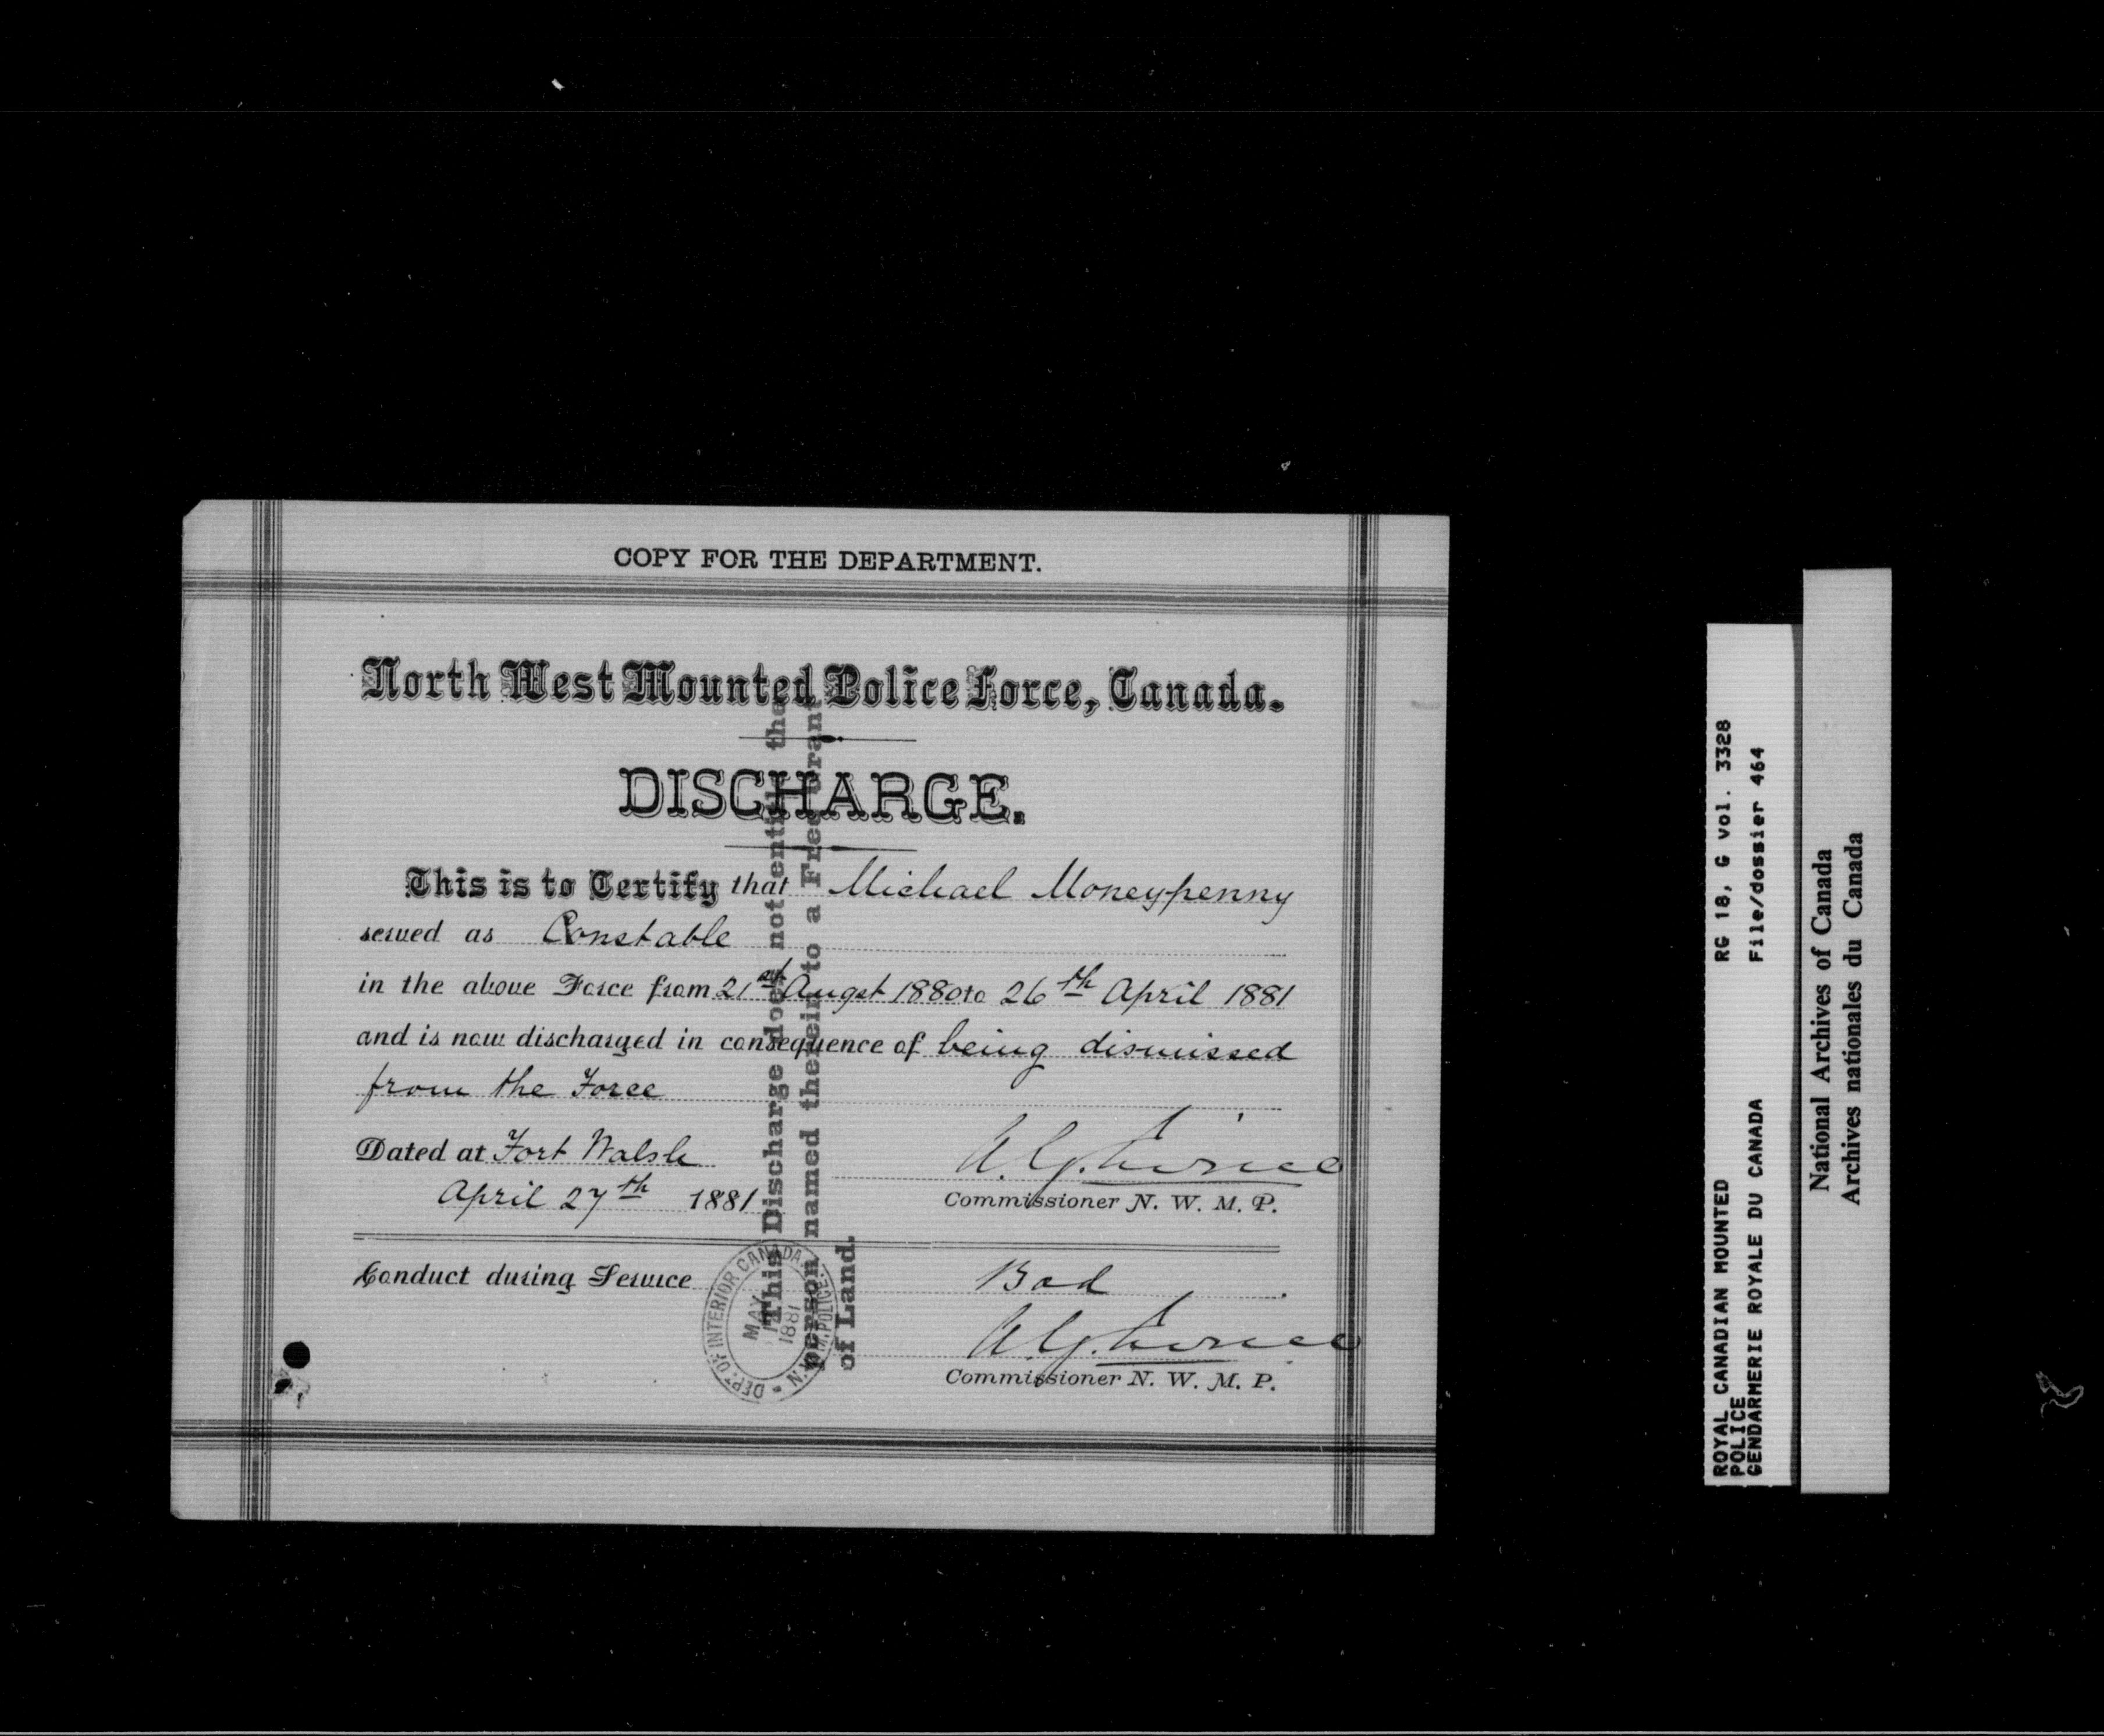 COPY FOR THE DEPARTMENT.
North West Mounted Police Force, Canada.
DISCHARGE.
This is to Certify that Michael Moneypenny
served as Constable
in the above Force from 21st Augst 1880 to 26th April 1881
and is now discharged in consequence of being dismissed
from the Force
Dated at Fort Walsh
April 27th 1881
A. G. Irvine
Commissioner N. W. M. P.
Conduct during Service Bad
A. G. Irvine
Commissioner N. W. M. P.
This Discharge does not entitle the
person named therein to a Free Grant
of Land.
DEPT. OF INTERIOR CANADA
N.W.M. POLICE.
MAY
1881
ROYAL CANADIAN MOUNTED RG 18, G vol. 3328
POLICE
GENDARMERIE ROYALE DU CANADA File/dossier 464
National Archives of Canada
Archives nationales du Canada